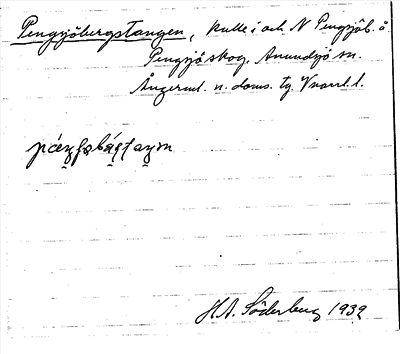 Pengsjöbergstangen, kulle i och N Pengsjöb. å
Pengsjö skog, Anundsjö sn.
Ångerml. n. doms. tg. Vnorrl. l.
H.A. Söderberg 1932